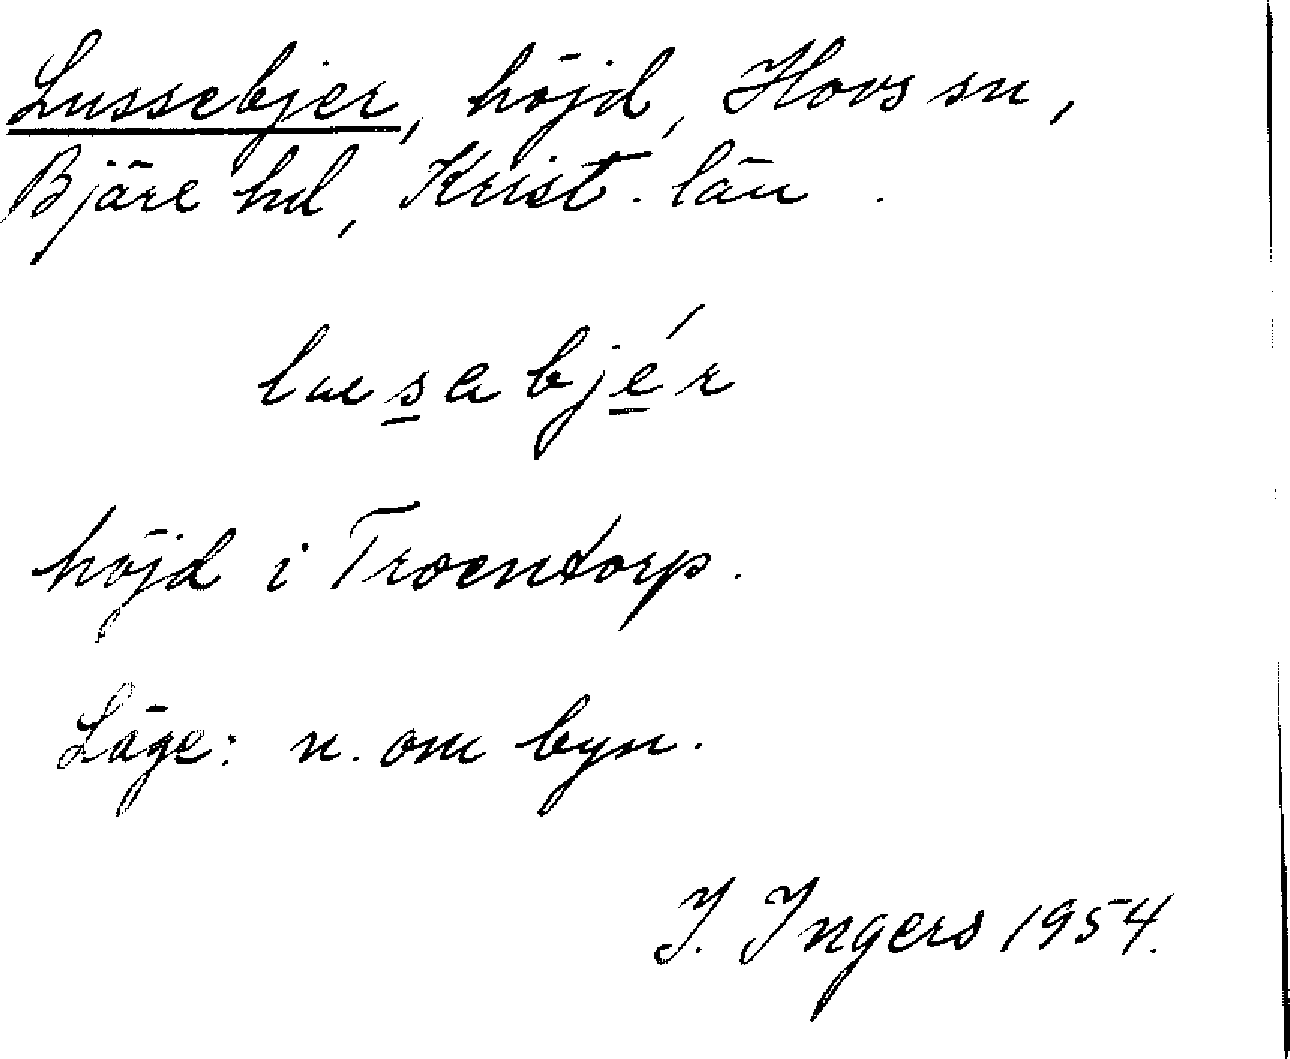 Lussebjer, höjd, Hovs sn,
Bjäre hd, Krist. län.
höjd i Troentorp.
Läge: n. om byn.
I. Ingers 1954.